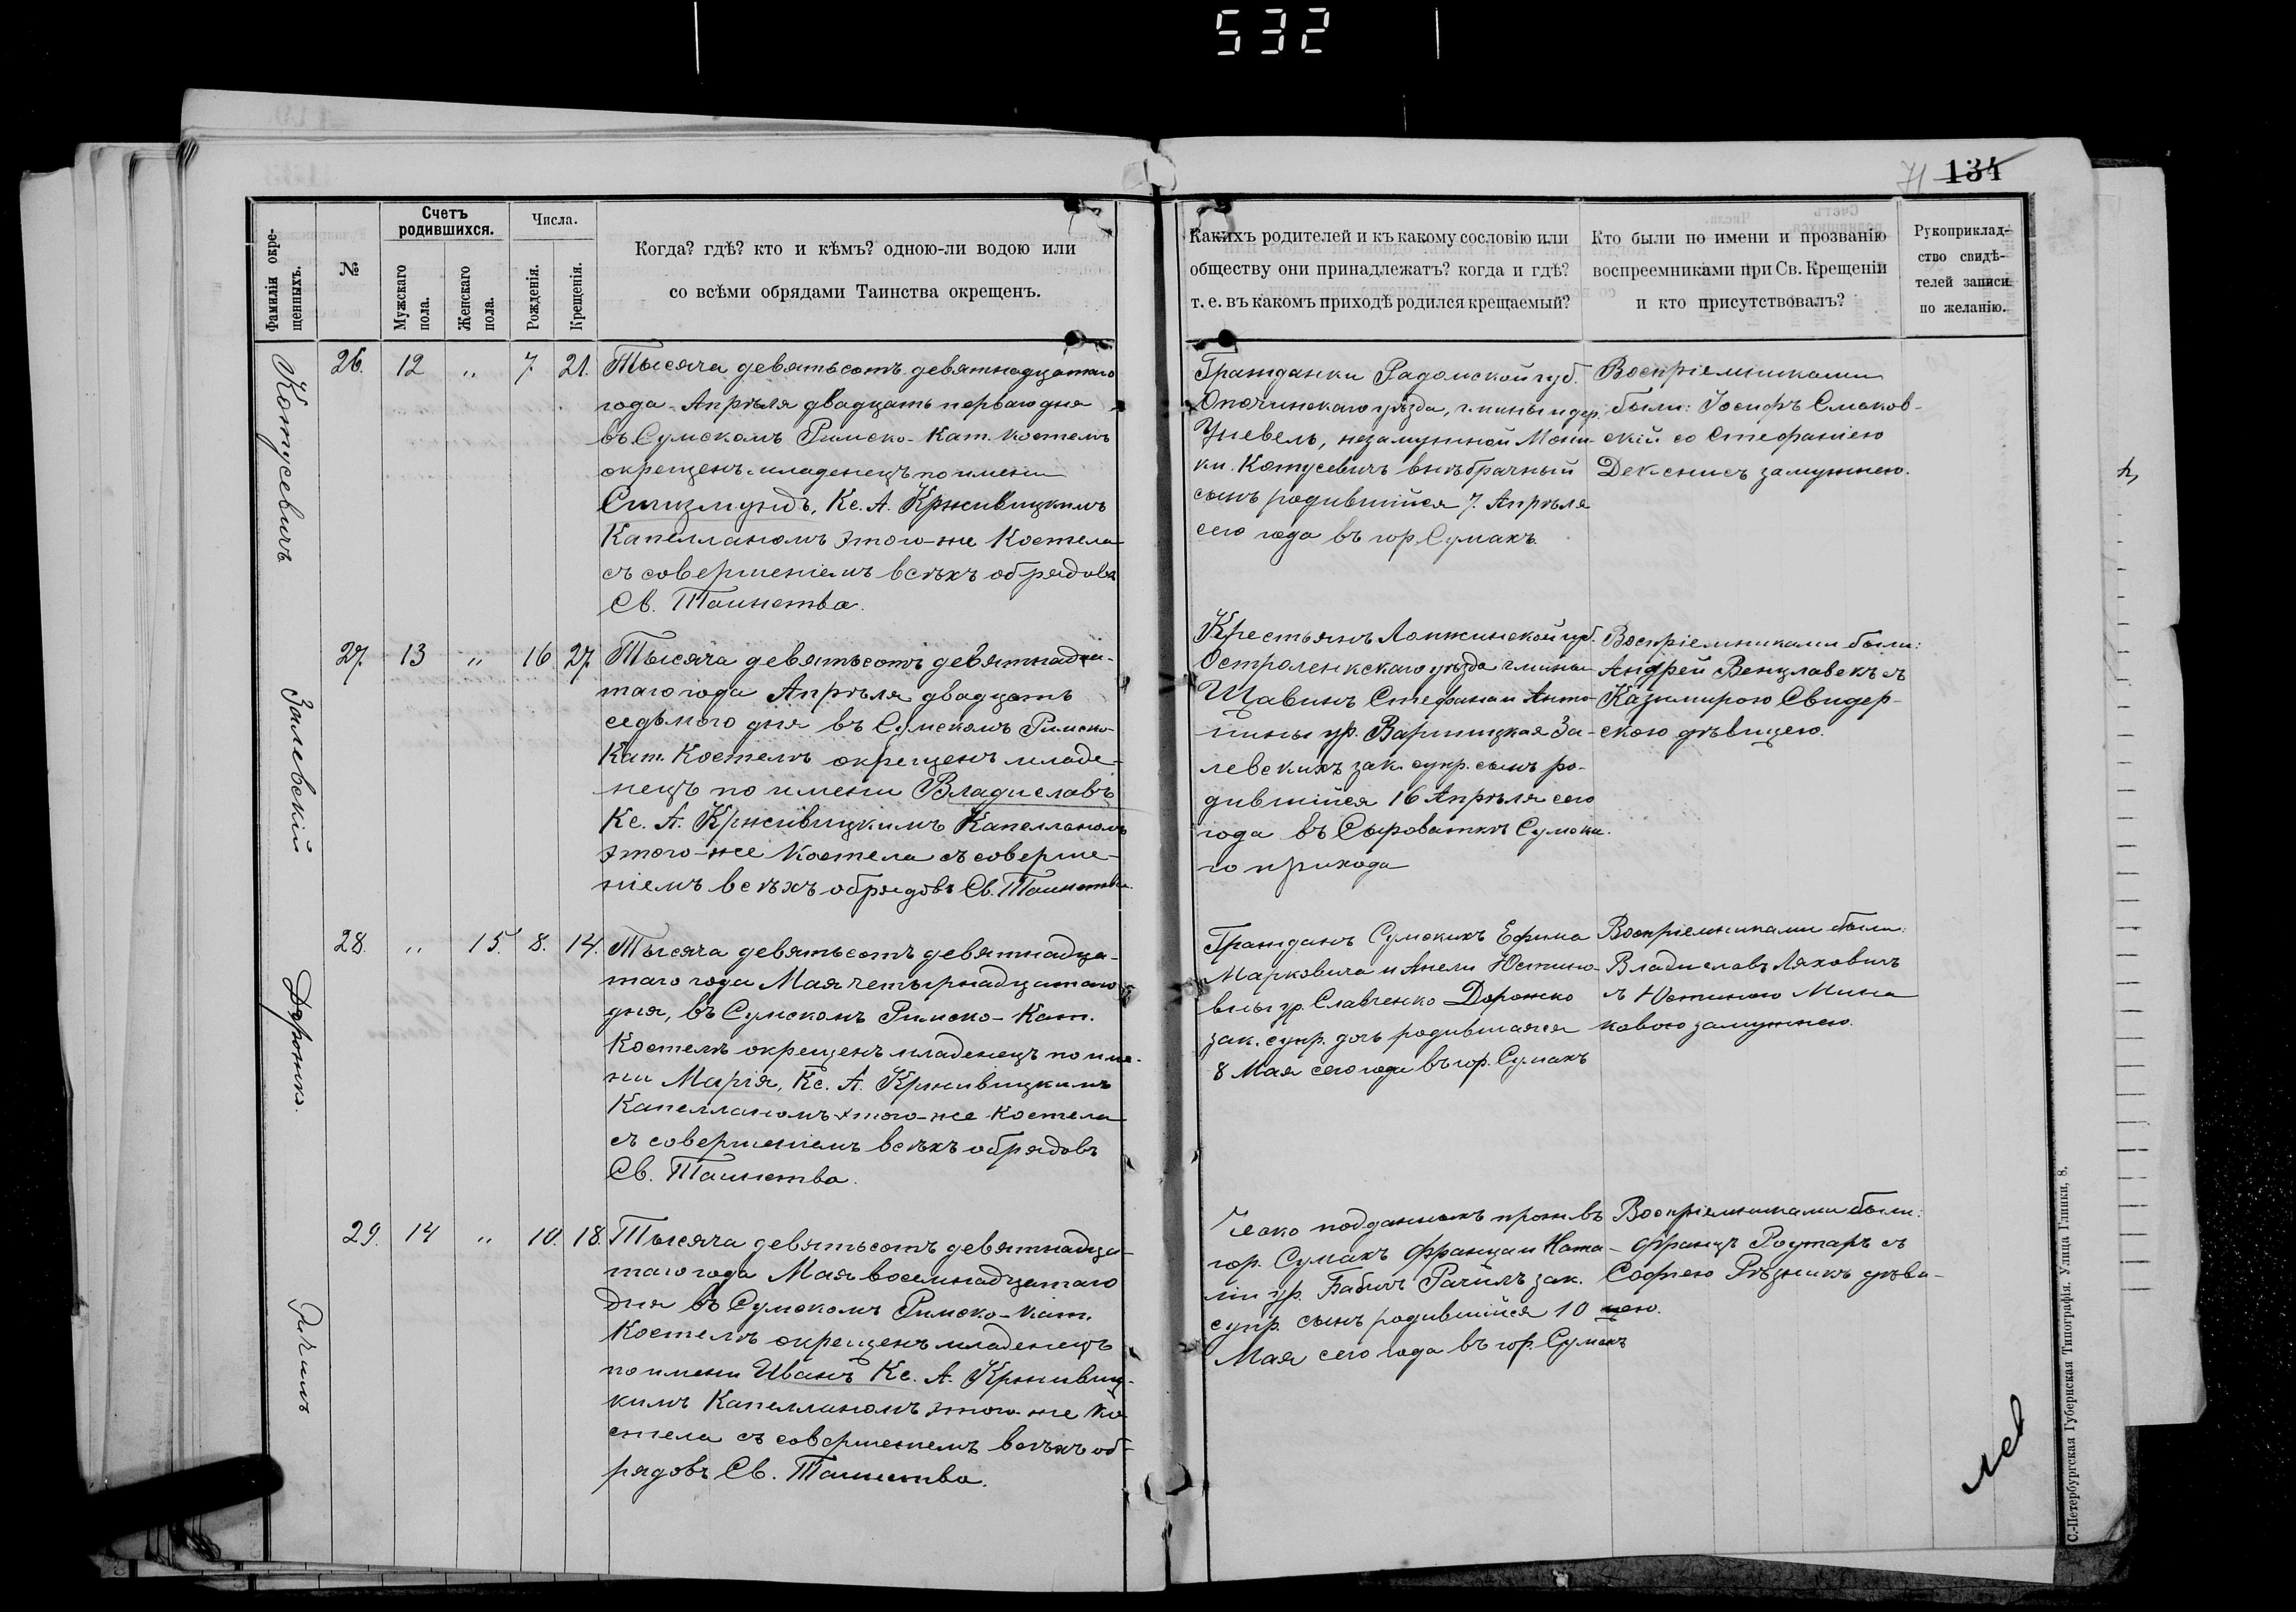 532
71 134
Фамиліи окре-
щенныхъ.
№
Счетъ
родившихся.
Мужскаго
пола.
Женскаго
пола.
Числа.
Рожденія.
Крещенія.
Когда? гдѣ? кто и кѣмъ? одною-ли водою или
со всѣми обрядами Таинства окрещенъ.
Какихъ родителей и къ какому сословію или
обществу они принадлежатъ? когда и гдѣ?
т. е. въ какомъ приходѣ родился крещаемый?
Кто были по имени и прозванію
воспреемниками при Св. Крещеніи
и кто присутствовалъ?
Рукоприклад-
ство свидѣ-
телей записи
по желанію.
Котусевичъ
26. 12 " 7 21.
Тысяча девятьсотъ девятнадцатаго
года Апрѣля двадцать перваго дня
въ Сумскомъ Римско-Кат. Костелѣ
окрещенъ младенецъ по имени
Сигизмундъ, Кс. А. Крживицкимъ
Капелланомъ этого-же Костела
съ совершеніемъ всѣхъ обрядовъ
Св. Таинства.
Гражданки Радомской губ.
Опочинскаго уѣзда, гмины и дер.
незамужной Мони-
ки Котусевичъ внѣбрачный
сынъ родившійся 7 Апрѣля
сего года въ гор. Сумахъ.
Воспріемниками
были: Іосифъ Смаков-
скій со Стефаніею
замужнею.
Залевскій
27. 13 " 16 27.
Тысяча девятьсотъ девятнадца-
таго года Апрѣля двадцать
седьмого дня въ Сумскомъ Римско-
Кат. Костелѣ окрещенъ младе-
нецъ по имени Владиславъ
Кс. А. Крживицкимъ Капелланомъ
этого-же Костела съ соверше-
ніемъ всѣхъ обрядовъ Св. Таинства.
Крестьянъ Ломжинской губ.
Остроленкскаго уѣзда гмины
Щавинъ Стефана и Анто-
нины ур. Варницкая За-
левскихъ зак. супр. сынъ ро-
дившійся 16 Апрѣля сего
года въ Сыроваткѣ Сумска-
го прихода
Воспріемниками были:
Андрей Венцлавекъ съ
Казимирою Свидер-
скою дѣвицею.
Дорожко.
28. " 15. 8. 14.
Тысяча девятьсотъ девятнадца-
таго года Мая четырнадцатаго
дня, въ Сумскомъ Римско-Кат.
Костелѣ окрещенъ младенецъ по име-
ни Марія, Кс. А. Крживицкимъ
Капелланомъ этого-же Костела
съ совершеніемъ всѣхъ обрядовъ
Св. Таинства.
Гражданъ Сумскихъ Ефима
Марковича и Анели Юстино-
вны ур. Славченко Дорожко
зак. супр. дочь родившаяся
8 Мая сего года въ гор. Сумахъ
Воспріемниками были:
Владиславъ Ляховичъ
съ Юстиною Мина-
ковою замужнею.
Рачилъ
29. 14 " 10. 18.
Тысяча девятьсотъ девятнадца-
таго года Мая восемнадцатаго
дня въ Сумскомъ Римско-Кат.
Костелѣ окрещенъ младенецъ
по имени Иванъ Кс. А. Крживиц-
кимъ Капелланомъ этого-же Ко-
стела съ совершеніемъ всѣхъ об-
рядовъ Св. Таинства.
Чеако подданныхъ прожив. въ
гор. Сумахъ Франца и Ната-
ліи ур. Бабичъ Рачилъ зак.
супр. сынъ родившійся 10
Мая сего года въ гор. Сумахъ
Воспріемниками были:
Францъ Роутаръ съ
Софіею Рѣзникъ дѣви-
цею.
С.-Петербургская Губернская Типографія. Улица Глинки, 8.